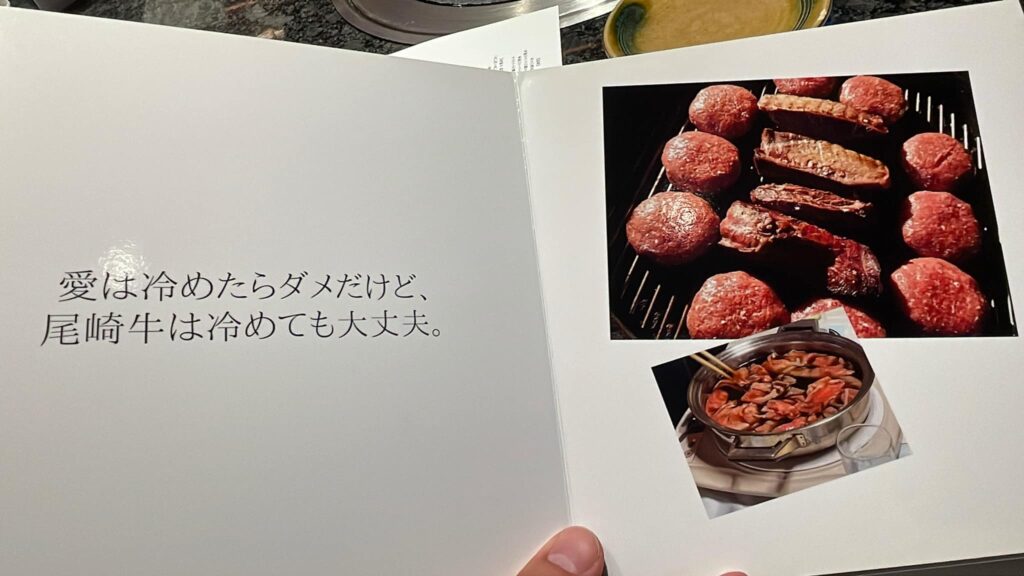 愛は冷めたらダメだけど、
尾崎牛は冷めても大丈夫。